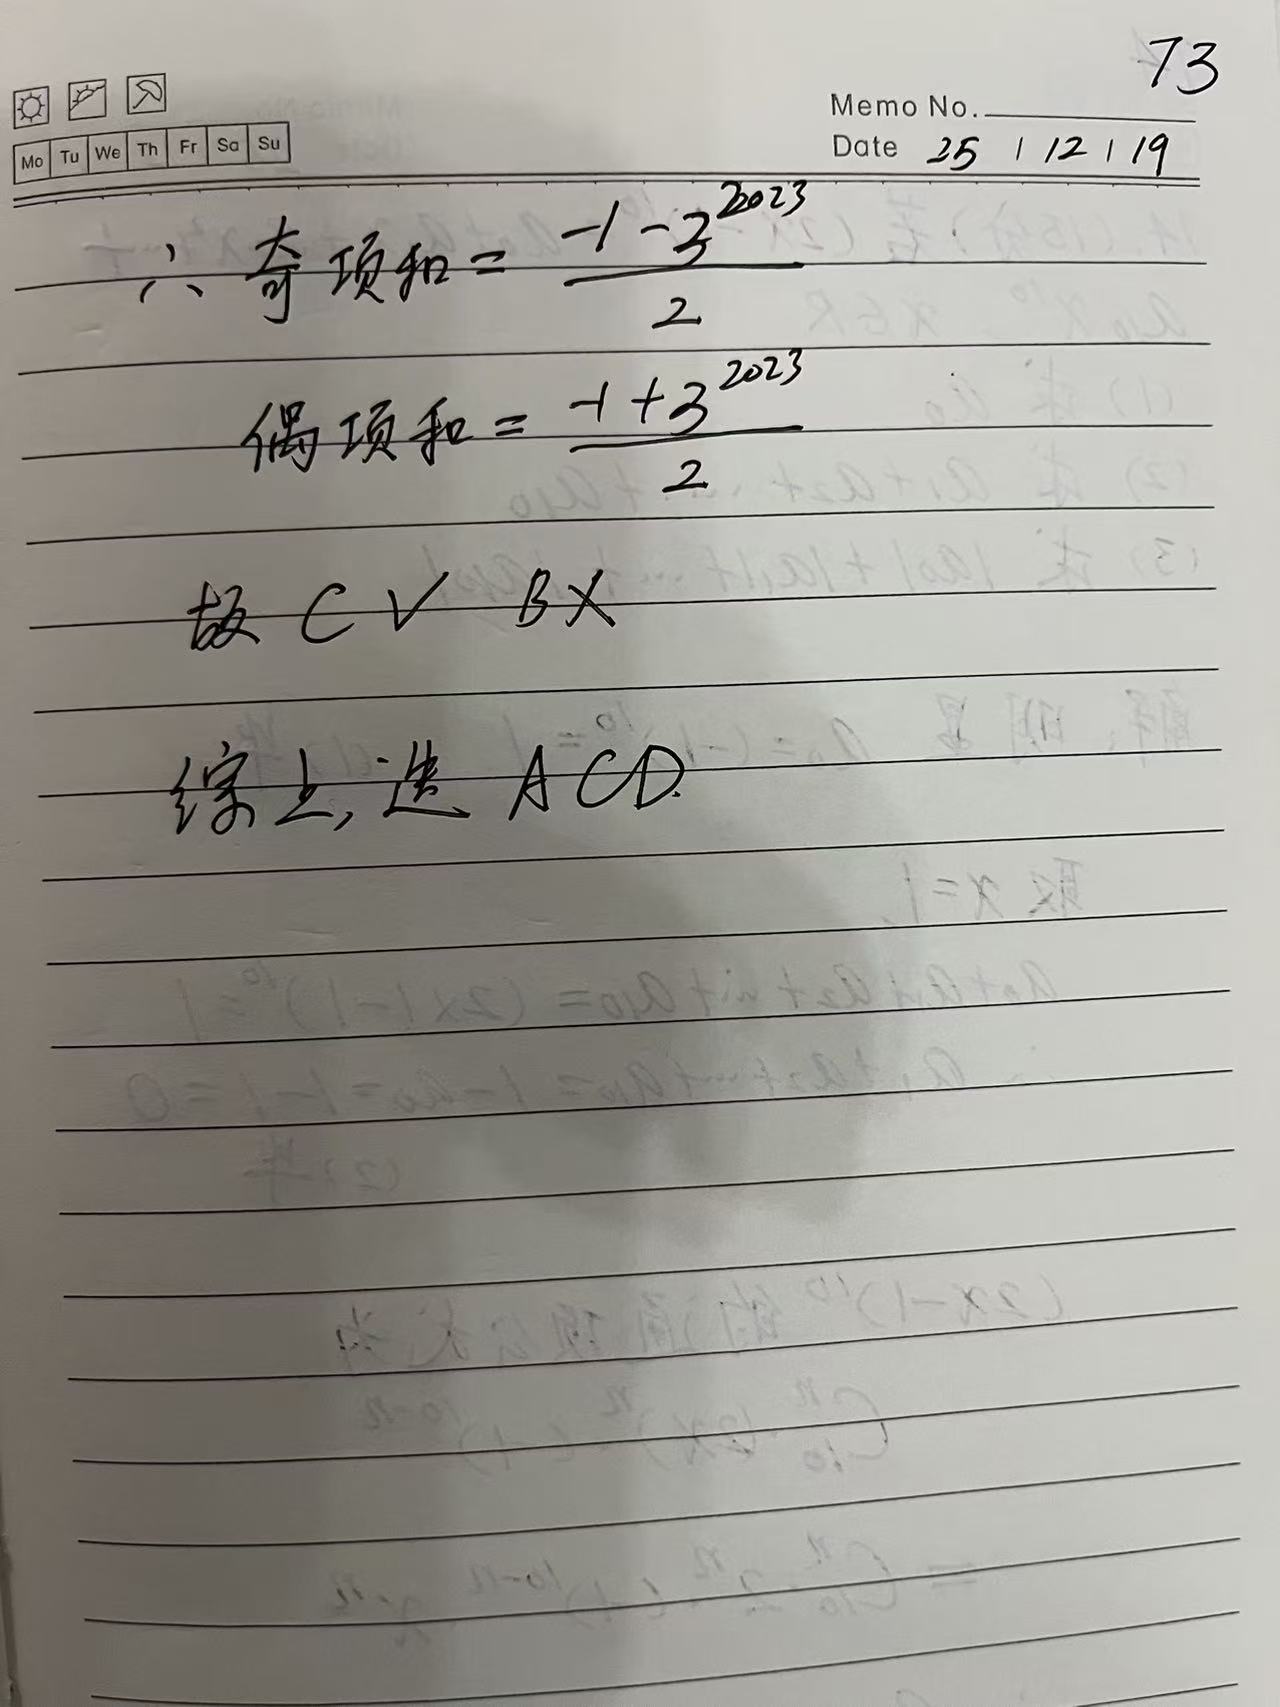 73
Memo No.
Mo Tu We Th Fr Sa Su
Date 25 / 12 / 19
∴ 奇项和 = (-1-3^2023)/2
偶项和 = (-1+3^2023)/2
故 C √ B X
综上,选 ACD.